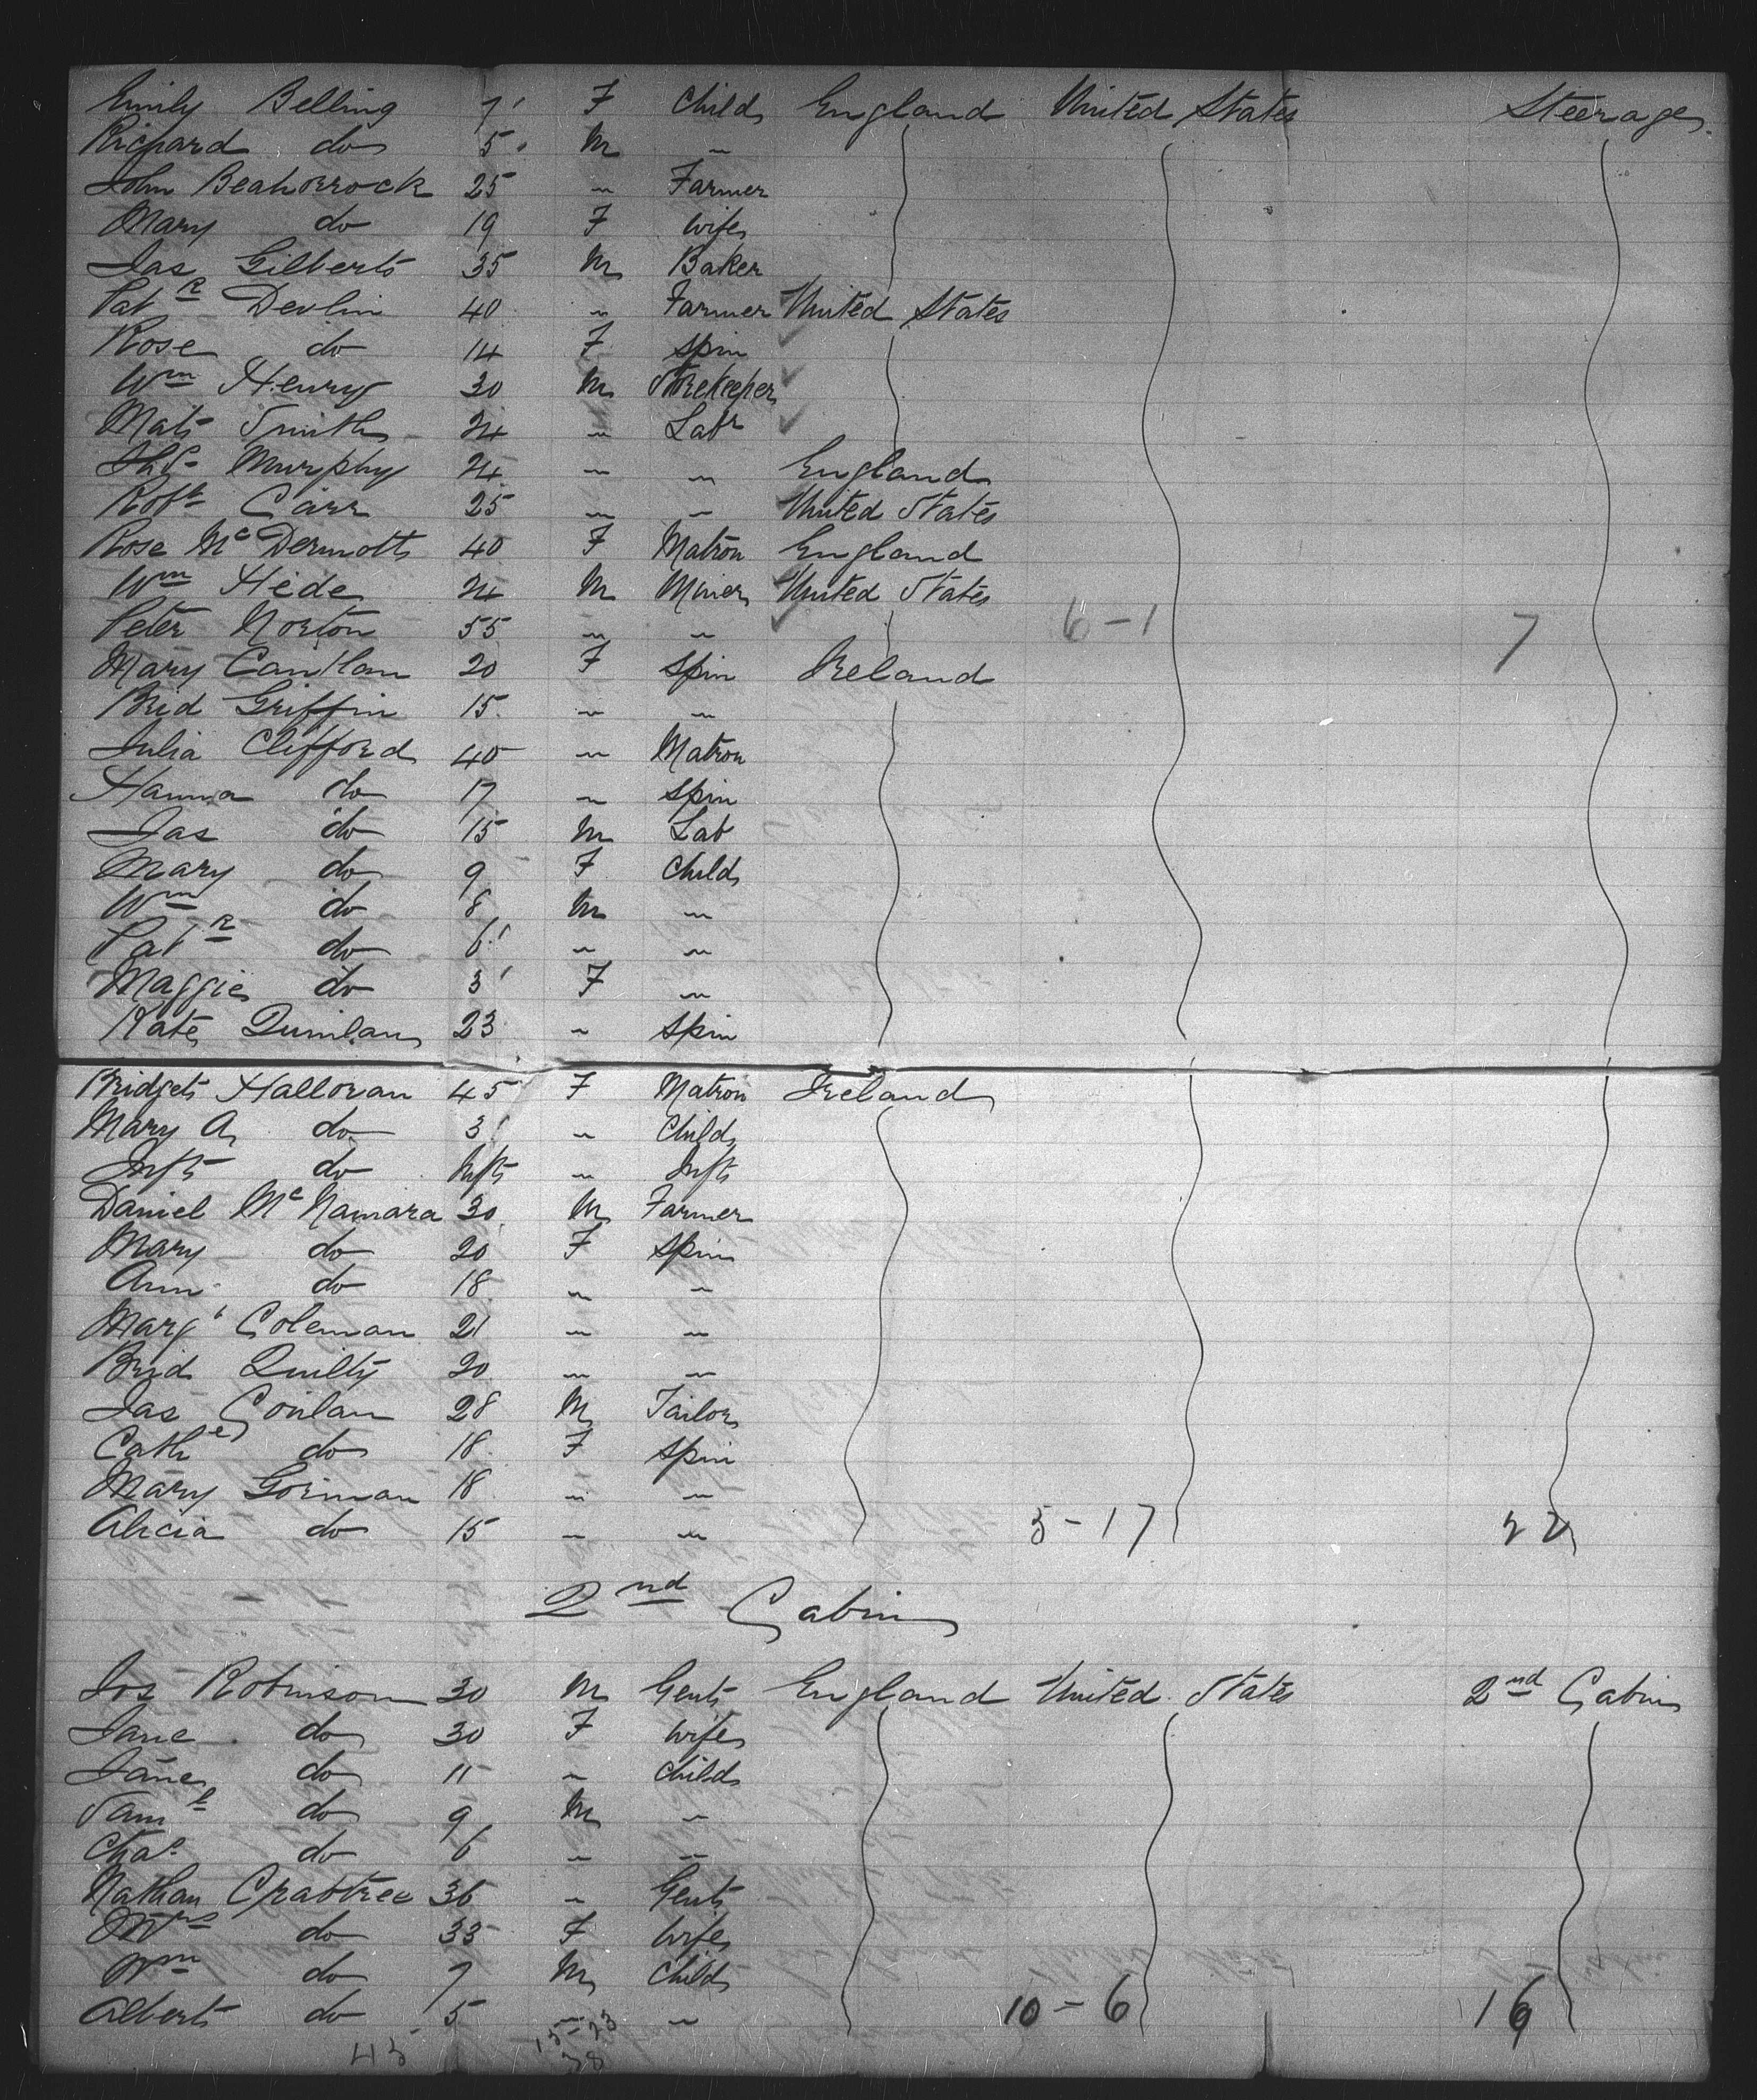 Emily Belling 7 F Child England United States Steerage
Richard do 5 M "
John Beahorrock 25 " Farmer
Mary do 19 F Wife
Jas Gilbert 35 M Baker
Patk Devlin 40 " Farmer United States
Rose do 14 F Spin
Wm Henry 30 M Storekeeper
Mat Smith 24 " Labr
Thos Murphy 24 " " England
Robt Carr 25 " " United States
Rose McDermott 40 F Matron England
Wm Hede 24 M Miner United States
Peter Norton 55 " " 6-1 7
Mary Cantlan 20 F Spin Ireland
Brid Griffin 15 " "
Julia Clifford 40 " Matron
Hanna do 17 " Spin
Jas do 15 M Lab
Mary do 9 F Child
Wm do 8 M "
Patk do 6 " "
Maggie do 3 F "
Kate Quinlan 23 " Spin
Bridget Halloran 45 F Matron Ireland
Mary A do 3 " Child
Inft do Inft " Inft
Daniel McNamara 30 M Farmer
Mary do 20 F Spin
Ann do 18 " "
Margt Coleman 21 " "
Brid Quilty 20 " "
Jas Conlan 28 M Tailor
Cathe do 18 F Spin
Mary Gorman 18 " "
Alicia do 15 " " 5-17 22
2nd Cabin
Jos Robinson 30 M Gent England United States 2nd Cabin
Jane do 30 F Wife
Jane do 11 " Child
Saml do 9 M "
Chas do 6 " "
Nathan Crabtree 36 " Gent
Mrs do 33 F Wife
Wm do 7 M Child
Albert do 5 " " 10-6 16
45 15-23
38